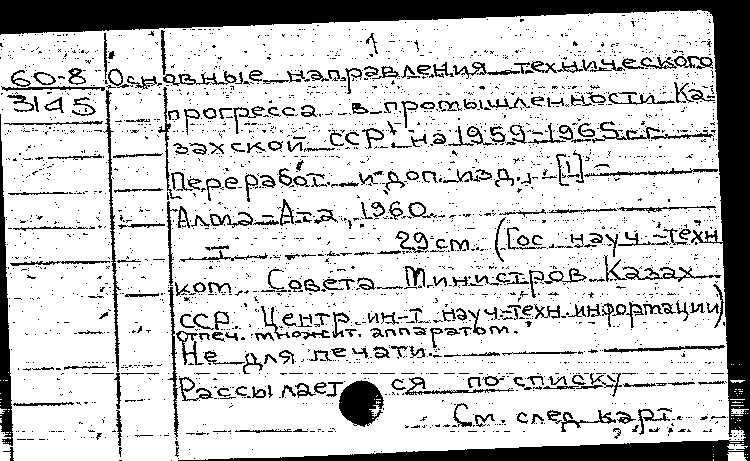 1
60-8 Основные направления технического
3145 прогресса в промышленности Ка-
захской ССР на 1959-1965 г.г.
Переработ. и доп. изд., [1] -
Алма-Ата, 1960.
I 29 см. (Гос. науч.-техн
ком. Совета Министров Казах
ССР. Центр. ин-т науч.-техн. информации)
отпеч. множит. аппаратом.
Не для печати.
Рассылается по списку
См. след. карт.